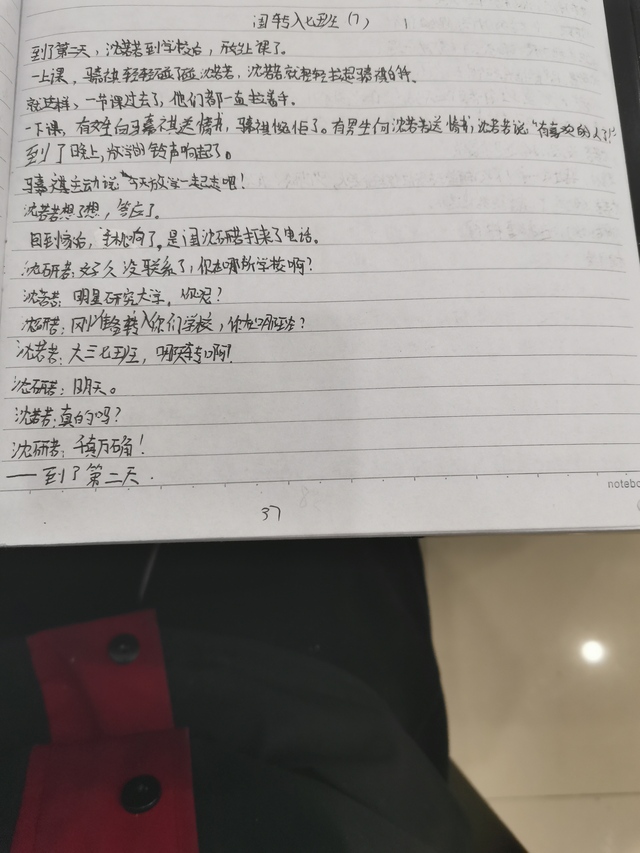 闺转入七班(7) 1
到了第二天,沈若若到学校后,就上课了。
一上课,骑祺轻轻碰了碰沈若若,沈若若就轻轻拉起骑祺的手。
就这样,一节课过去了,他们都一直拉着手。
一下课,有女生向马嘉祺送情书,骑祺做拒了。有男生向沈若若送情书,沈若若说:"有喜欢的人了!"
到了晚上,放学的铃声响起了。
骑祺主动说:"今天放学一起走吧!
沈若若想了想,答应了。
回到家后,手机响了,是闺沈研若打来了电话。
沈研若:好久没联系了,你在哪所学校啊?
沈若若:明星研究大学,你呢?
沈研若:刚准备转入你们学校,你在哪班?
沈若若:大三七班,哪天转啊!
沈研若:明天。
沈若若:真的吗?
沈研若:千真万确!
——到了第二天.
notebo
37